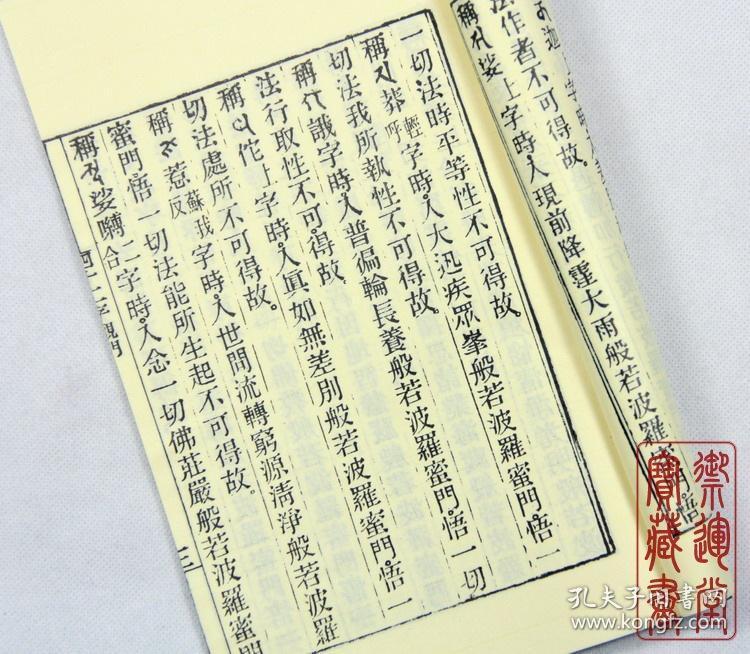 法作者不可得故。
稱娑上字時入現前降霔大雨般若波羅蜜門悟
一切法時平等性不可得故。
稱莽輕呼字時入大迅疾眾峯般若波羅蜜門悟一
切法我所執性不可得故。
稱誐字時入普徧輪長養般若波羅蜜門悟一切
法行取性不可得故。
稱佗上字時入眞如無差別般若波羅蜜門悟一
切法處所不可得故。
稱惹蘇我反字時入世間流轉窮源清淨般若波羅
蜜門悟一切法能所生起不可得故。
稱娑嚩二合字時入念一切佛莊嚴般若波羅蜜門
三
御運堂
寶藏書
孔夫子旧书网
www.kongfz.com